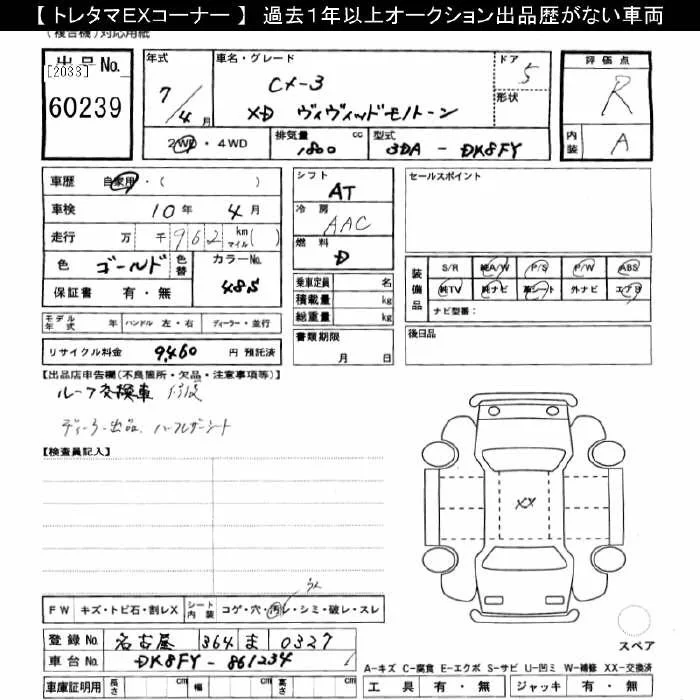 【 トレタマEXコーナー 】 過去1年以上オークション出品歴がない車両
(複合機)対応用紙
出品No.
[2033]
60239
年式
7/4月
車名・グレード
CX-3
XD ヴィヴィッドモノトーン
ドア
5
形状
2WD・4WD
排気量 1800 cc
型式 3DA - DK8FY
評価点
R
内装 A
車歴 自家用・( )
車検 10年 4月
走行 万 千 962 km マイル( )
色 ゴールド 色替 カラーNo. 48S
保証書 有・無
モデル年式 年 ハンドル 左・右 ディーラー・並行
リサイクル料金 9,460 円 預託済
シフト
AT
冷房
AAC
燃料
D
乗車定員 名
積載量 kg
総重量 kg
書類期限
月 日
セールスポイント
装備品
S/R 純A/W P/S P/W ABS
純TV 純ナビ 革シート 外ナビ エアB
ナビ型番:
後日品
【出品店申告欄(不良箇所・欠品・注意事項等)】
ルーフ交換車 修復
ディーラー出品、ハーフレザーシート
【検査員記入】
XX
FW キズ・トビ石・割レX シート内装 コゲ・穴・汚レ・シミ・破レ・スレ
登録No. 名古屋 364 ま 0327
車台No. DK8FY-861234
車庫証明用 長さ cm 幅 cm 高さ cm
スペア
A-キズ C-腐食 E-エクボ S-サビ U-凹ミ W-補修 XX-交換済
工具 有・無 ジャッキ 有・無